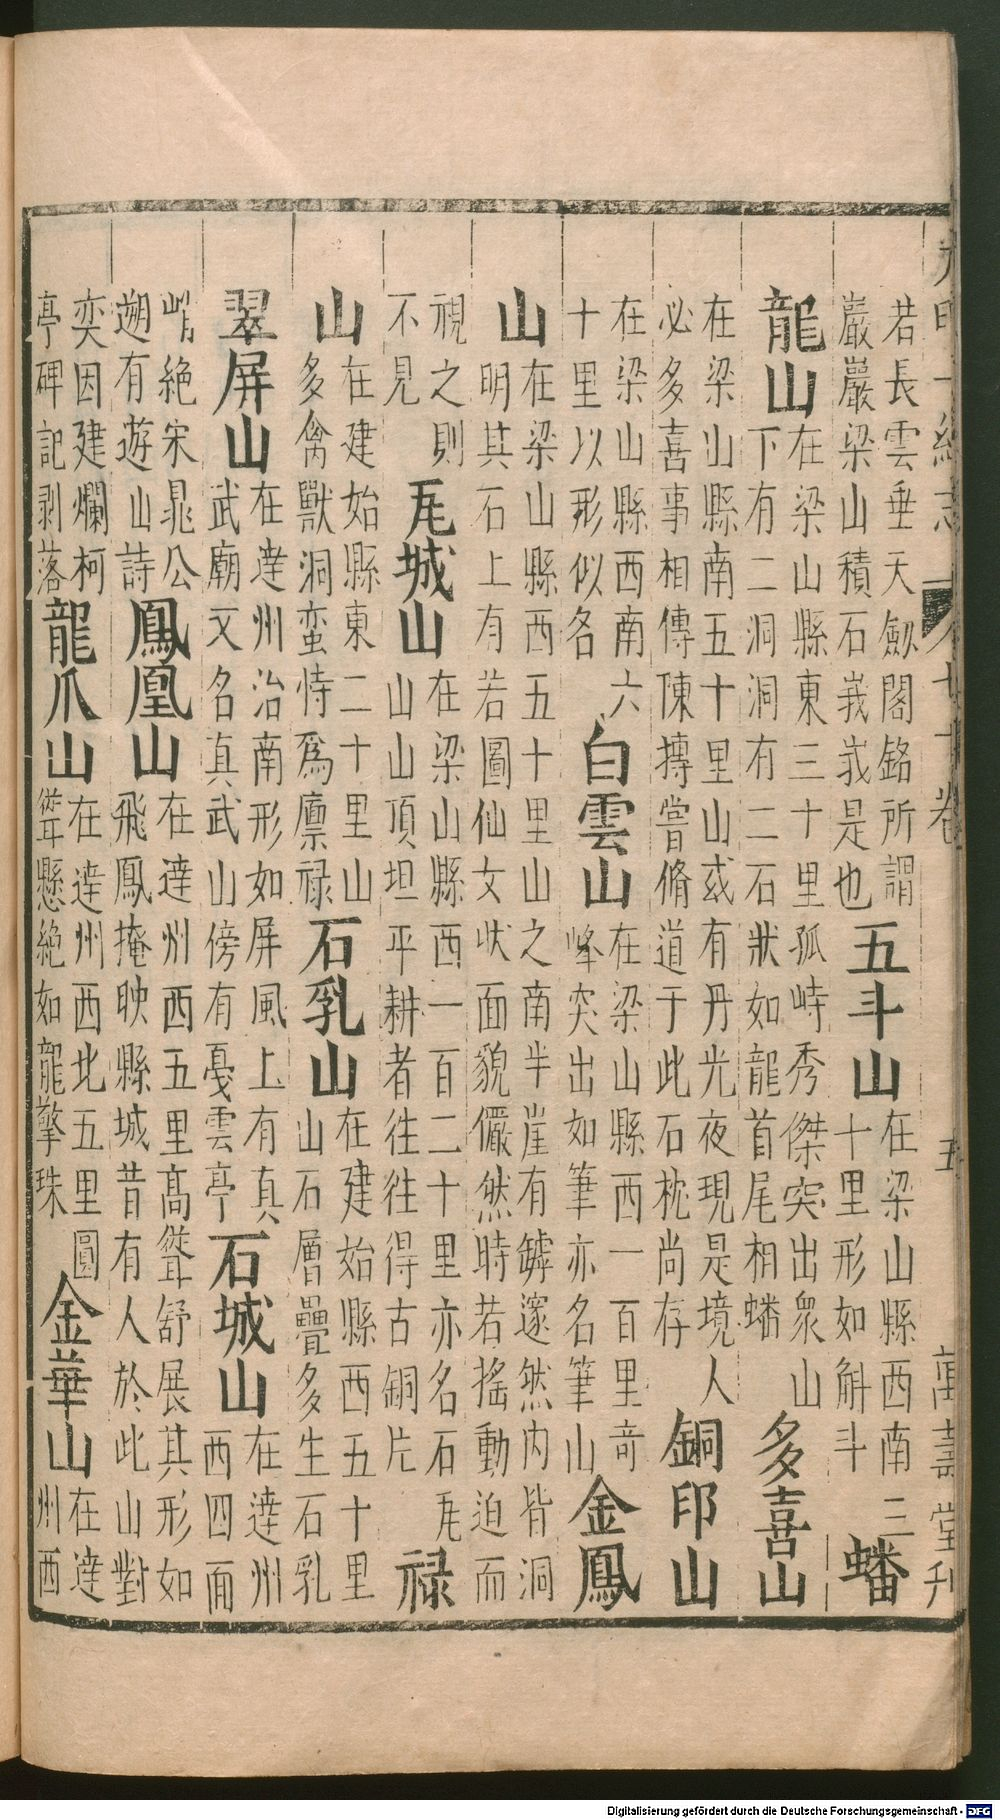 大明一統志 七十卷 五 萬壽堂刊
若長雲垂天劔閣銘所謂
巖巖梁山積石峩峩是也
五斗山
在梁山縣西南三
十里形如斛斗
蟠
龍山
在梁山縣東三十里孤峙秀傑突出衆山
下有二洞洞有二石狀如龍首尾相蟠
多喜山
在梁山縣南五十里山或有丹光夜現是境人
必多喜事相傳陳摶嘗脩道于此石枕尚存
銅印山
在梁山縣西南六
十里以形似名
白雲山
在梁山縣西一百里奇
峰突出如筆亦名筆山
金鳳
山
在梁山縣西五十里山之南半崖有罅邃然内皆洞
明其石上有若圖仙女狀面貌儼然時若搖動迫而
視之則
不見
瓦城山
在梁山縣西一百二十里亦名石瓦
山山頂坦平耕者往往得古銅片
禄
山
在建始縣東二十里山
多禽獸洞蛮恃爲廪禄
石乳山
在建始縣西五十里
山石層疊多生石乳
翠屏山
在逹州治南形如屏風上有真
武廟又名真武山傍有戞雲亭
石城山
在逹州
西四面
峭絶宋晁公
遡有遊山詩
鳳凰山
在逹州西五里高聳舒展其形如
飛鳳掩映縣城昔有人於此山對
奕因建爛柯
亭碑記剥落
龍爪山
在逹州西北五里圓
聳懸絶如龍擎珠
金華山
在逹
州西
Digitalisierung gefördert durch die Deutsche Forschungsgemeinschaft - DFG